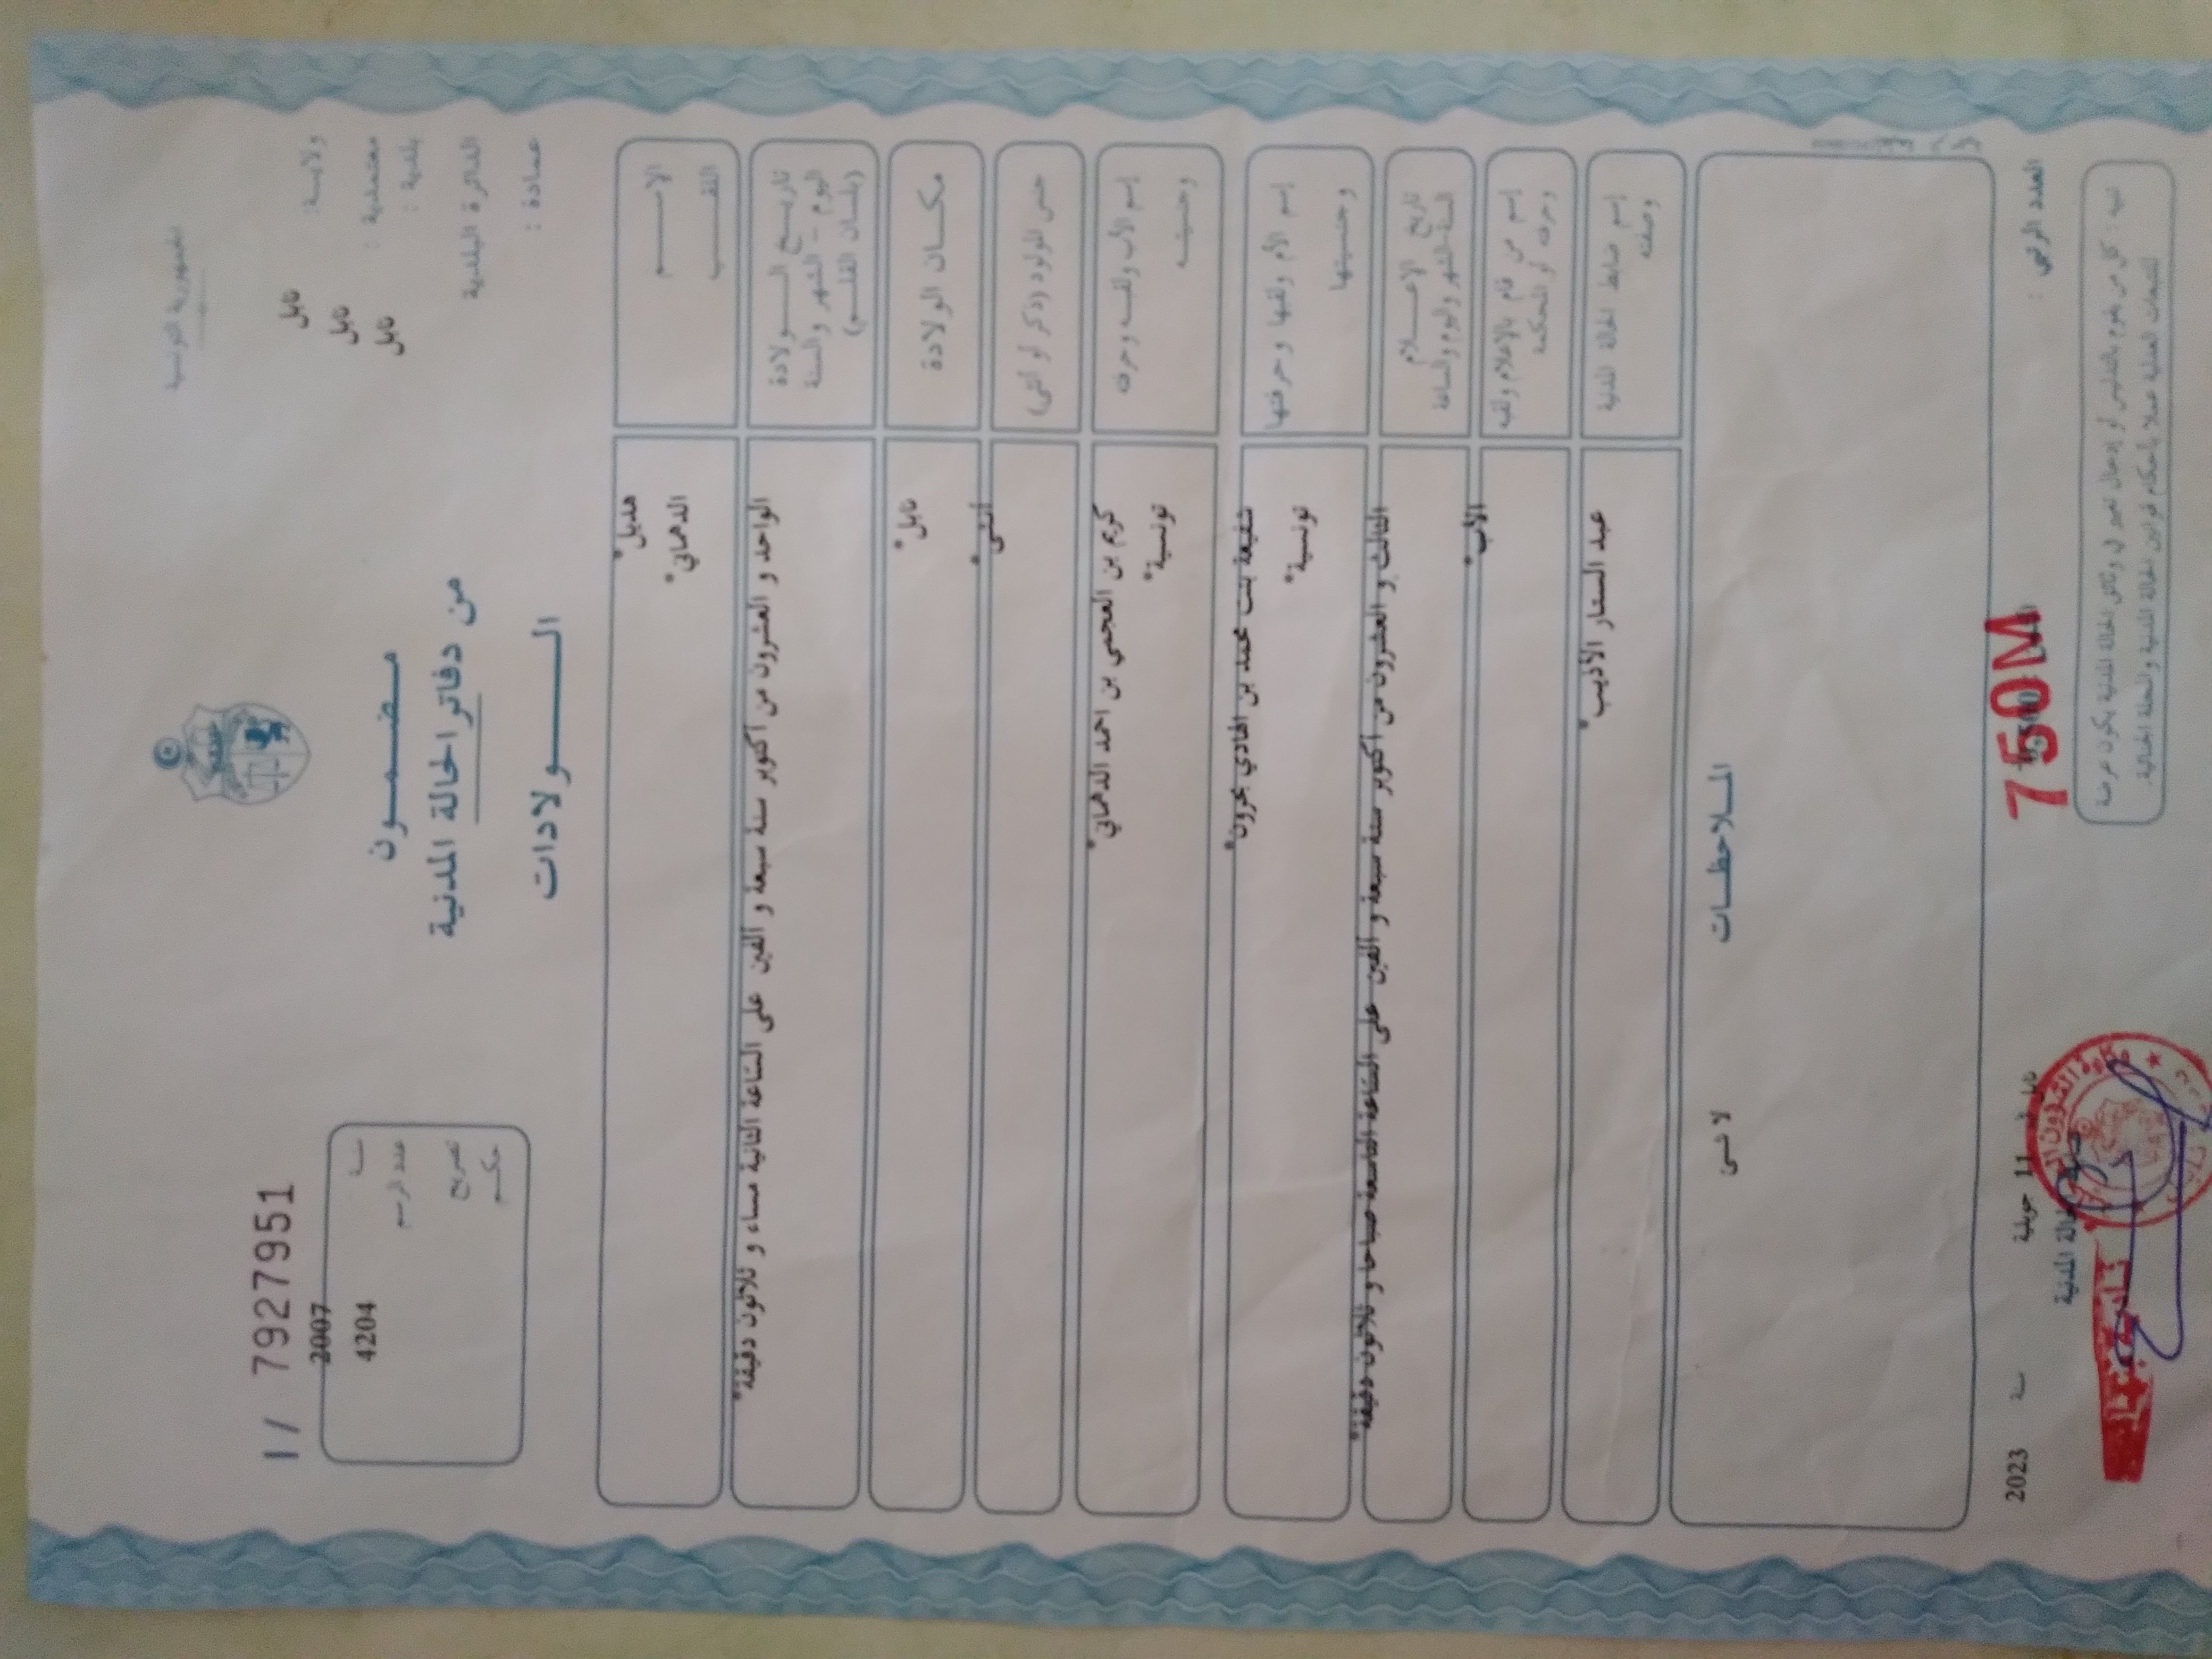 الجمهورية التونسية
ولاية: نابل
معتمدية : نابل
بلدية : نابل
الدائرة البلدية
عمادة :
مضمون
من دفاتر الحالة المدنية
الولادات
I / 7927951
سنة 2007
عدد الرسم 4204
تصريح
حكم
الاسم هديل*
اللقب الدهماني*
تاريخ الولادة
اليوم - الشهر والسنة
(بلسان القلم)
الواحد و العشرون من أكتوبر سنة سبعة و ألفين على الساعة الثانية مساء و ثلاثون دقيقة*
مكان الولادة نابل*
جنس المولود (ذكر أو أنثى) أنثى*
إسم الأب ولقبه وحرفته كريم بن العجمي بن احمد الدهماني*
وجنسيته تونسية*
إسم الأم ولقبها وحرفتها شفيعة بنت محمد بن الهادي بحرون*
وجنسيتها تونسية*
تاريخ الإعلام
السنة الشهر واليوم والساعة
الثالث و العشرون من أكتوبر سنة سبعة و ألفين على الساعة التاسعة صباحا و ثلاثون دقيقة*
إسم من قام بالإعلام ولقبه
وحرفته أو المحكمة
الأب*
إسم ضابط الحالة المدنية
وصفته
عبد الستار الأديب*
الملاحظات
لا شئ
العدد الرتبي :
750M
نابل في 11 جويلية سنة 2023
ضابط الحالة المدنية
تنبيه : كل من يقوم بالتدليس أو إدخال تغيير في وثائق الحالة المدنية يكون عرضة
للتتبعات العدلية عملا بأحكام قوانين الحالة المدنية والمجلة الجنائية.